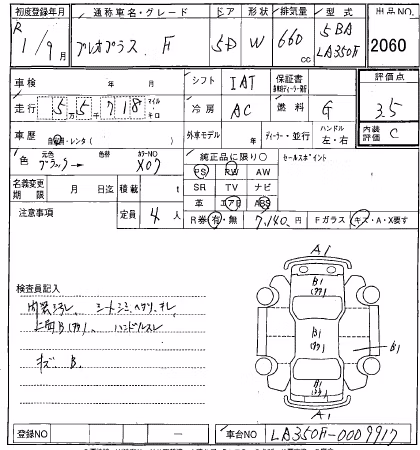 初度登録年月 通称車名・グレード ドア 形状 排気量 型式 出品NO.
R 1/9月 プレオプラス F 5D W 660cc 5BA LA350F 2060
車検 年 月 シフト IAT 保証書 評価点
走行 5万5千718 マイル キロ 冷房 AC 燃料 G 3.5
車歴 自家用・レンタ( ) 外車モデル 年 ディーラー・並行 ハンドル 左・右 内装評価 C
色 元色 ブラック→ 色替 カラーNO X07 純正品に限り○ セールスポイント
名義変更期限 月 日迄 積載 t PS PW AW
SR TV ナビ
注意事項 定員 4人 革 エアB ABS
R券 有・無 7,140円 Fガラス キズ・A・X要す
検査員記入
内装汚れ、シートシミ、ヘタリ、スレ
上面B(タタリ)、ハンドルスレ
キズ B.
A1
B1
B1
B1
B1
A1
登録NO ー 車台NO LA350F-0009917